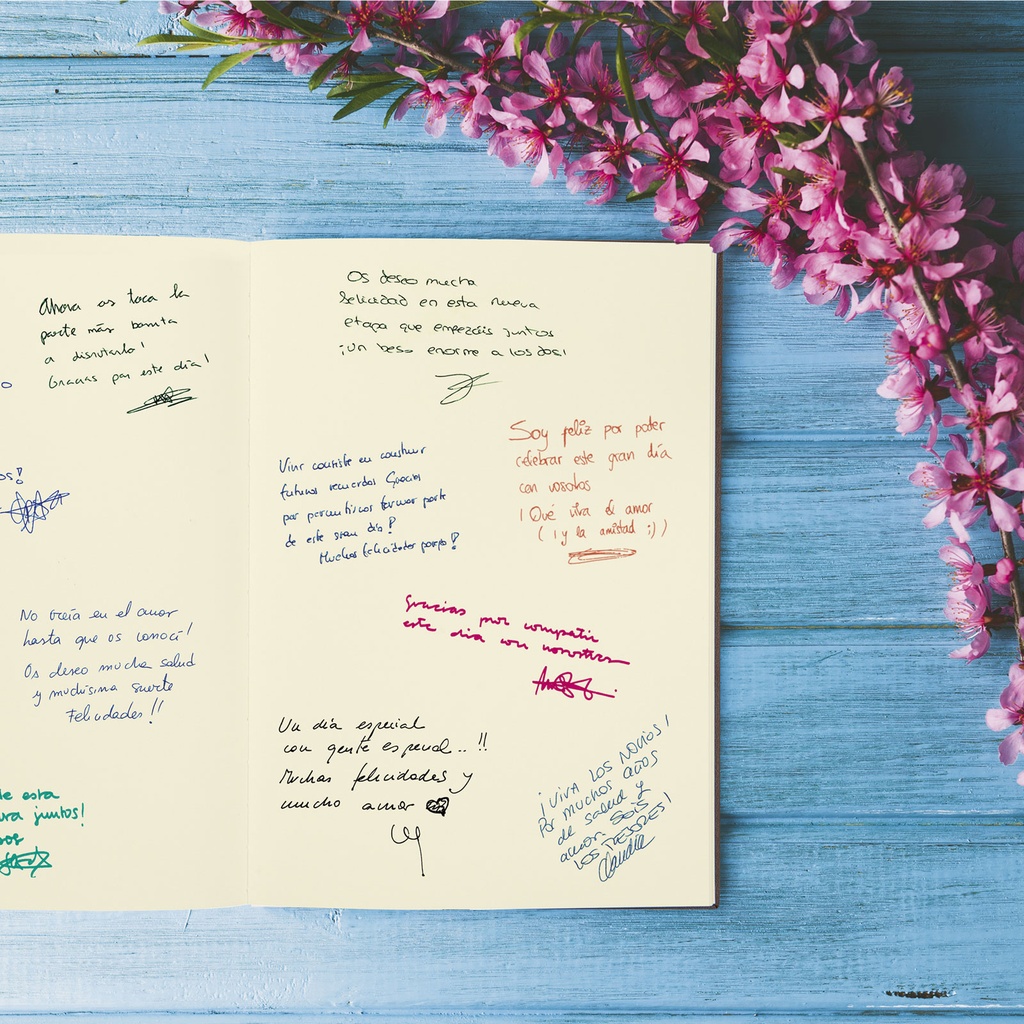 Ahora os toca la
parte más bonita
a disfrutarlo!
Gracias por este día!
o
os!
No creía en el amor
hasta que os conocí!
Os deseo mucha salud
y muchísima suerte
Felicidades!!
de esta
juntos!
Os deseo mucha
felicidad en esta nueva
etapa que empezáis juntos
¡Un beso enorme a los dos!
Vivir consiste en construir
futuros recuerdos Gracias
por permitirnos formar parte
de este gran día!
Muchas felicidades pareja!
Soy feliz por poder
celebrar este gran día
con vosotros
¡Qué viva el amor
(¡y la amistad ;)
Gracias por compartir
este día con nosotros
Un día especial
con gente especial..!!
Muchas felicidades y
mucho amor
¡VIVA LOS NOVIOS!
Por muchos años
de salud y
amor. SOIS
LOS MEJORES!
Claudia